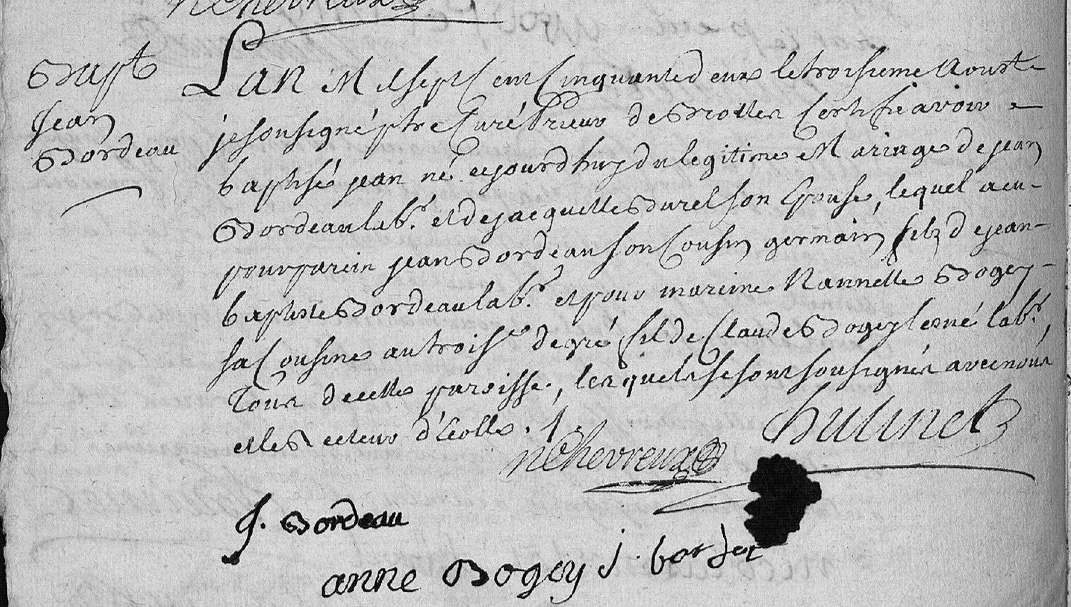 NChevreux
Bapt
Jean
Bordeau
L'an Mil sept Cent Cinquante deux le troisieme Aoust
je sousigné ptre Curé Prieur de Certifie avoir
baptisé jean né cejourdhuy du legitime Mariage de jean
Bordeau lab.r et de jacquelle Burel son Epouse, lequel a eu
pour parein jean Bordeau son Cousin germain filz de jean
baptiste Bordeau lab.r et pour mareine Nannette Bogey
sa Cousine au trois.e degré fille de Claude Bogey lesné lab.r,
Tous de cette paroisse, lesquels se sont sousignés avec nous
et le Recteur d'écolle. /.
NChevreux hulinet
J. Bordeau
anne Bogey j. bor